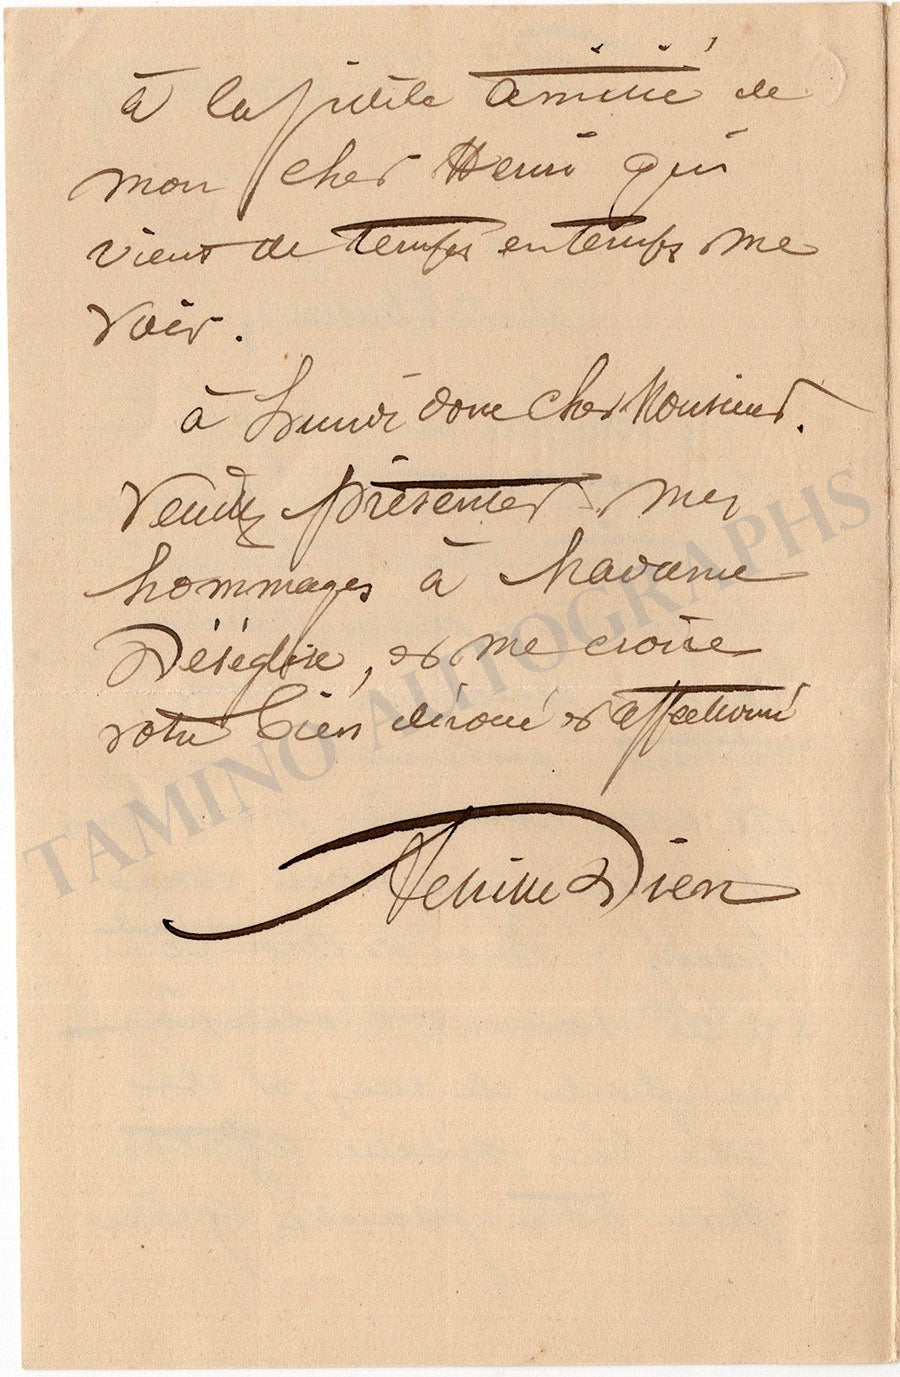 à la fidèle amitié de
mon cher Henri qui
vient de temps en temps me
voir.
à Lundi donc cher Monsieur.
Veuillez présenter mes
hommages à Madame
Déséglise, et me croire
votre bien dévoué et affectionné
Achille Dien
TAMINO AUTOGRAPHS